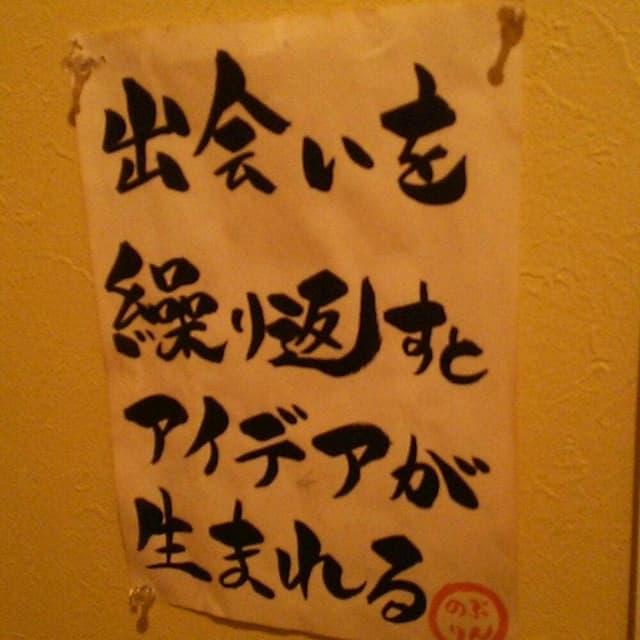 出会いを
繰り返すと
アイデアが
生まれる
のぶ